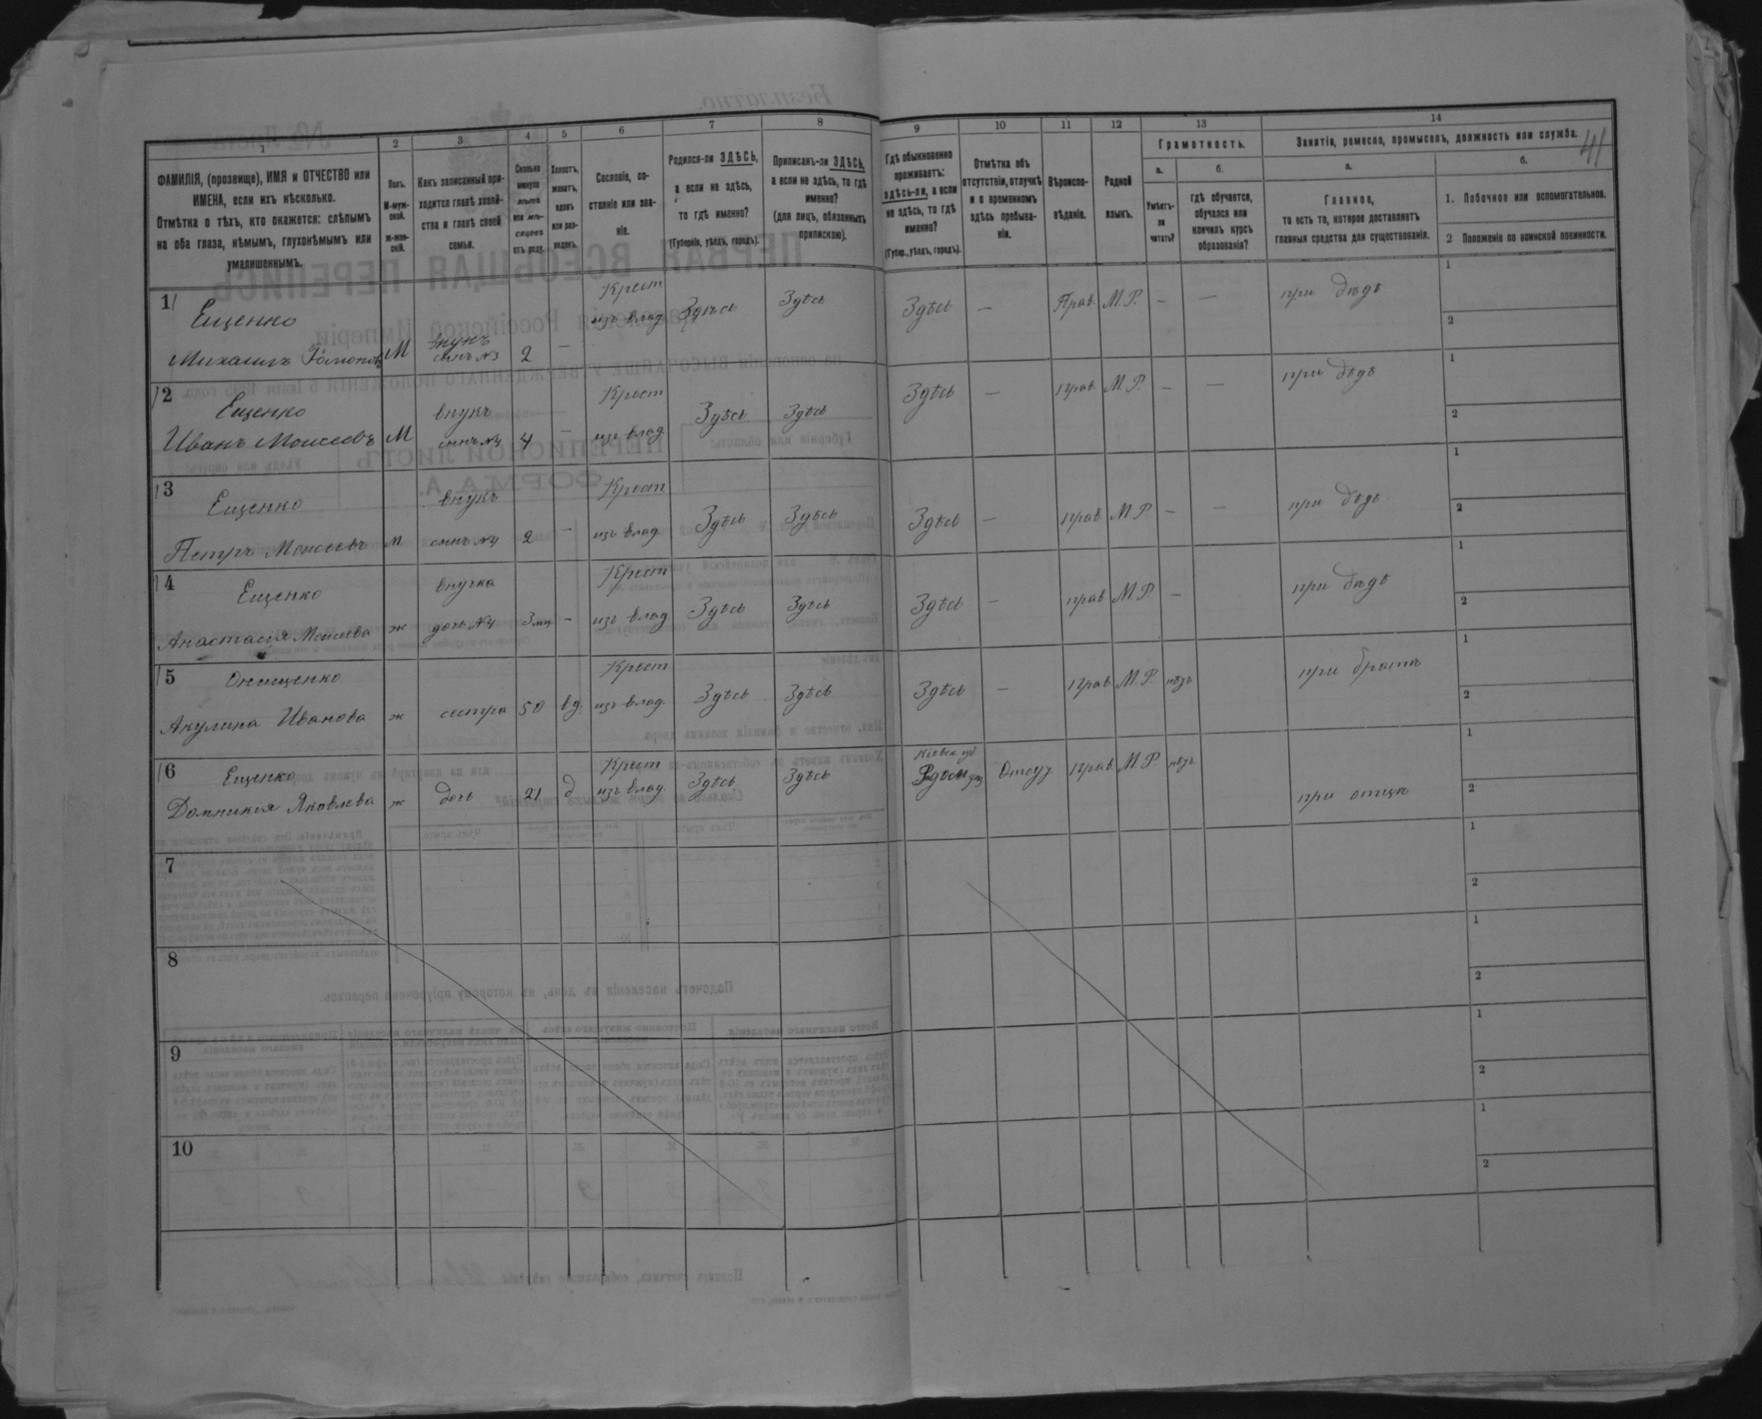 41
1 2 3 4 5 6 7 8 9 10 11 12 13 14
ФАМИЛІЯ, (прозвище), ИМЯ и ОТЧЕСТВО или
ИМЕНА, если ихъ нѣсколько.
Отмѣтка о тѣхъ, кто окажется: слѣпымъ
на оба глаза, нѣмымъ, глухонѣмымъ или
умалишеннымъ.
Полъ.
М-муж-
ской.
Ж-жен-
скій.
Какъ записанный при-
ходится главѣ хозяй-
ства и главѣ своей
семьи.
Сколько
минуло
лѣтъ
или мѣ-
сяцевъ
отъ роду.
Холостъ,
женатъ,
вдовъ
или раз-
веденъ.
Сословіе, со-
стояніе или зва-
ніе.
Родился-ли ЗДѢСЬ,
а если не здѣсь,
то гдѣ именно?
(Губернія, уѣздъ, городъ).
Приписанъ-ли ЗДѢСЬ,
а если не здѣсь, то гдѣ
именно?
(для лицъ, обязанныхъ
припискою).
Гдѣ обыкновенно
проживаетъ:
здѣсь-ли, а если
не здѣсь, то гдѣ
именно?
(Губер., уѣздъ, городъ).
Отмѣтка объ
отсутствіи, отлучкѣ
и о временномъ
здѣсь пребыва-
ніи.
Вѣроиспо-
вѣданіе.
Родной
языкъ.
Грамотность.
а.
Умѣетъ-
ли
читать?
б.
гдѣ обучается,
обучался или
кончилъ курсъ
образованія?
Занятіе, ремесло, промыселъ, должность или служба.
а.
Главное,
то есть то, которое доставляетъ
главныя средства для существованія.
б.
1. Побочное или вспомогательное.
2 Положеніе по воинской повинности.
1 Ещенко Крест Здѣсь Здѣсь Здѣсь — Прав М.Р. — — при дѣдѣ 1
Михаилъ М внукъ сынъ №3 2 — изъ влад 2
2 Ещенко внукъ Крест Здѣсь Здѣсь Здѣсь — прав М.Р. — — при дѣдѣ 1
Иванъ Моисеевъ М сынъ №4 4 — изъ влад. 2
3 Ещенко внукъ Крест Здѣсь Здѣсь Здѣсь — прав М.Р — — при дѣдѣ 1
Петръ Моисеевъ м сынъ №4 2 — изъ влад 2
4 Ещенко внучка Крест Здѣсь Здѣсь Здѣсь — прав М.Р — при дѣдѣ 1
Анастасія Моисеева ж дочь №4 3 мѣс — изъ влад 2
5 Онищенко Крест Здѣсь Здѣсь Здѣсь — прав М.Р. нѣтъ при братѣ 1
Акулина Иванова ж сестра 50 вд. изъ влад. 2
6 Ещенко Крест Здѣсь Здѣсь Кіевск губ Отсут прав М.Р. нѣтъ 1
Домникія Яковлева ж дочь 21 д изъ влад. при отцѣ 2
7 1
2
8 1
2
9 1
2
10 1
2